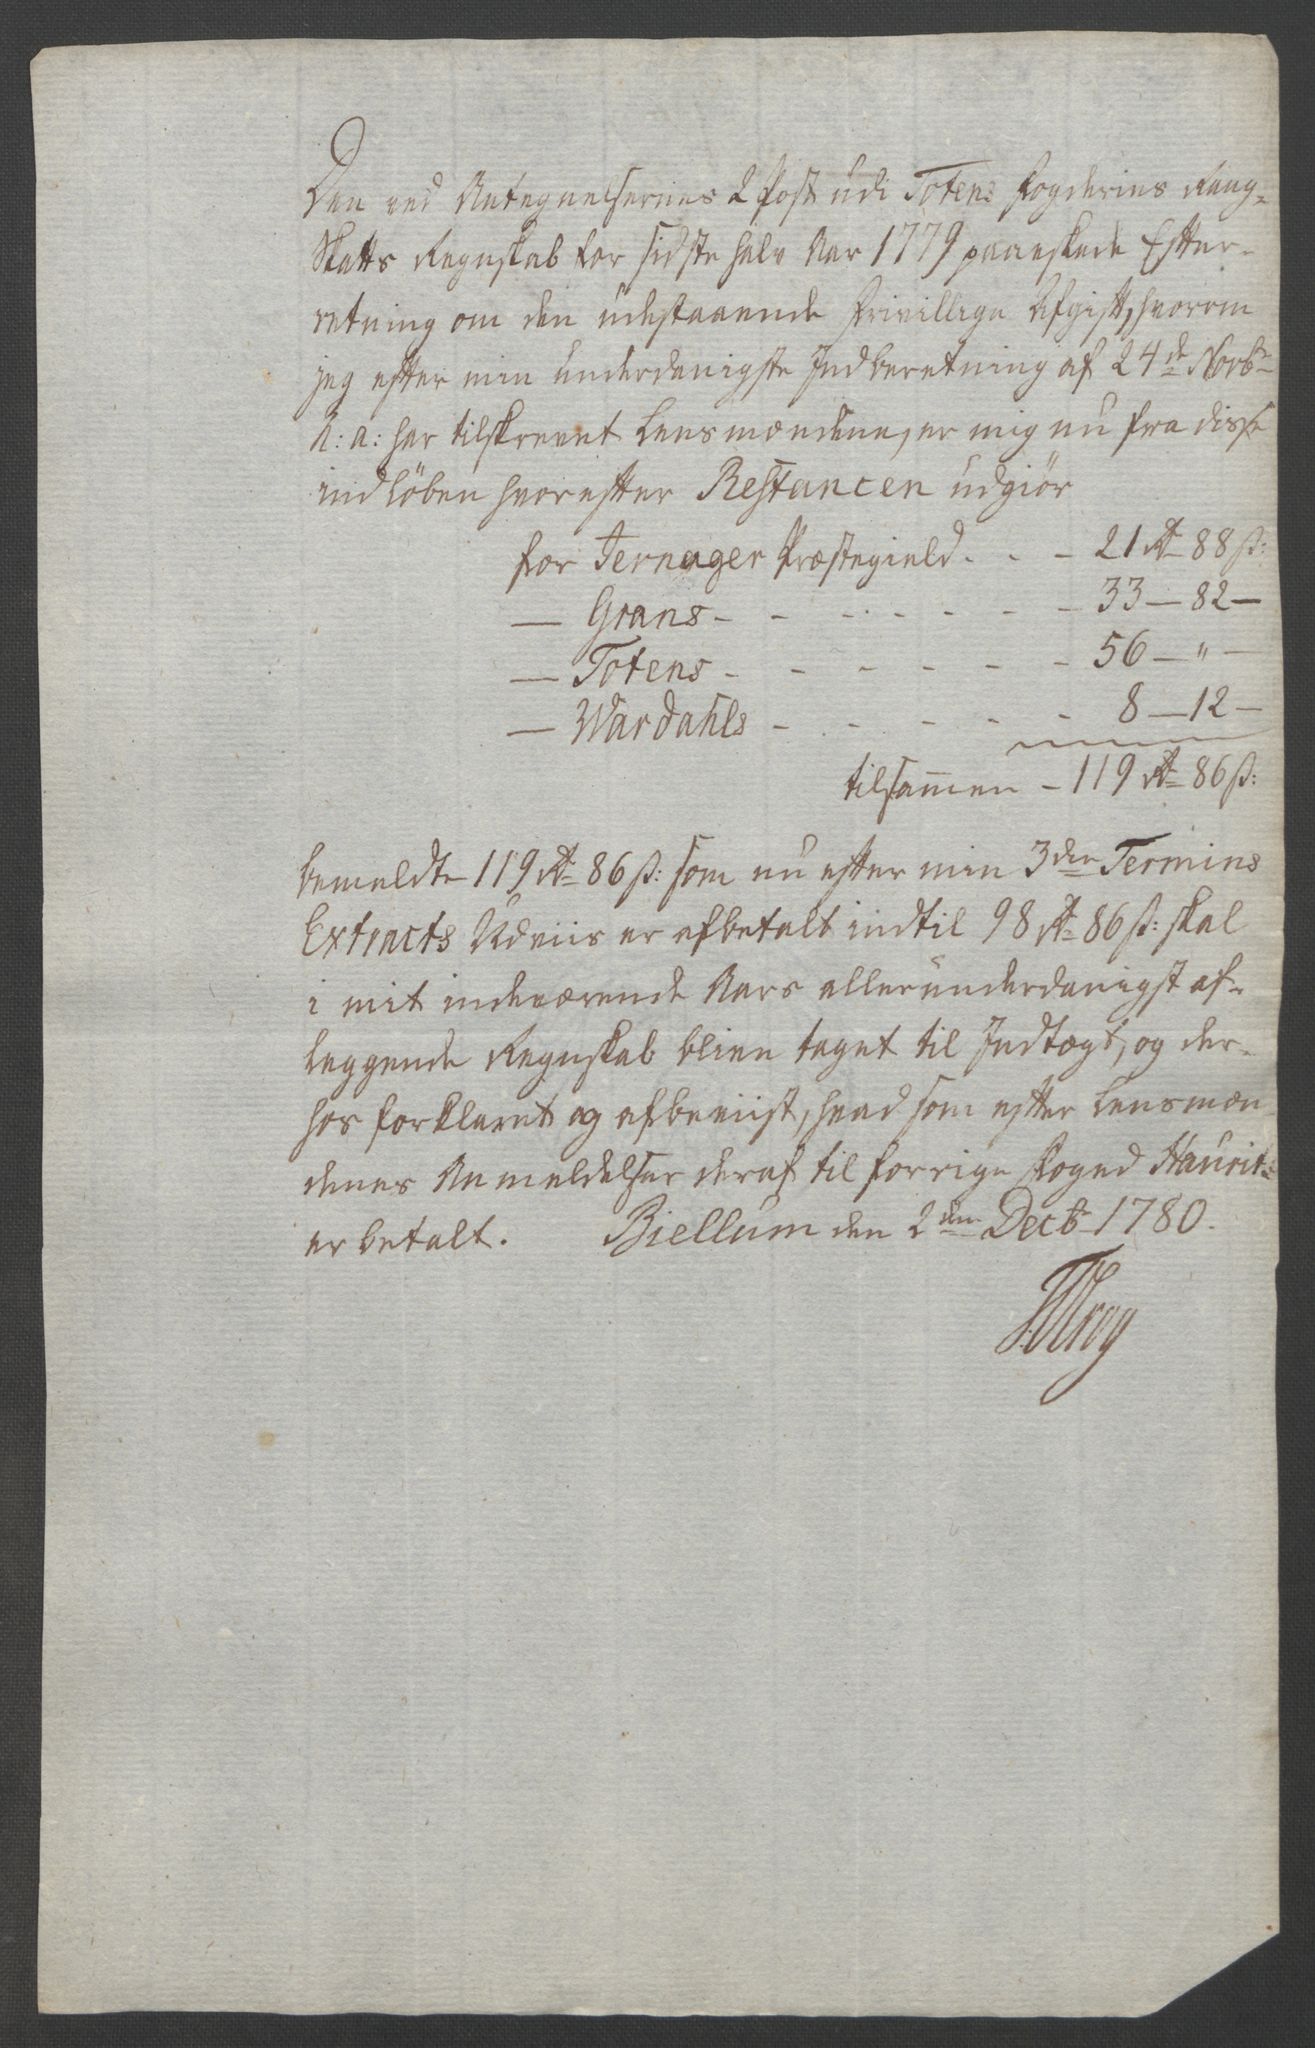 Den ved Antegnelsernes 2 Post udi Totens Fogderies Rang-
Skatts Regnskab for sidste halv Aar 1779 paaeskede Efter-
retning om den udestaaende frivillige Afgift, hvorom
jeg efter min underdanigste Indberetning af 24de Novbr
h: a: har tilskrevet Lensmændene, er mig nu fra disse
indløben hvorefter Restancen udgiør
for Jernager Præstegield - - - 21 rd 88 ß:
— Grans - - - - - - - 33 — 82 —
— Totens - - - - - - 56 — " —
— Wardahls - - - - - 8 — 12 —
tilsammen - 119 rd 86 ß:
bemeldte 119 rd 86 ß: som nu efter min 3die Termins
Extracts Udviis er afbetalt indtil 98 rd 86 ß: skal
i mit indeværende Aars allerunderdanigst af-
leggende Regnskab blive taget til Indtægt, og der-
hos forklaret og afbeviist, hvad som efter Lensmæn
denes Anmeldelser deraf til forrige Foged Haurits
er betalt. Biellum den 2den Decbr 1780.